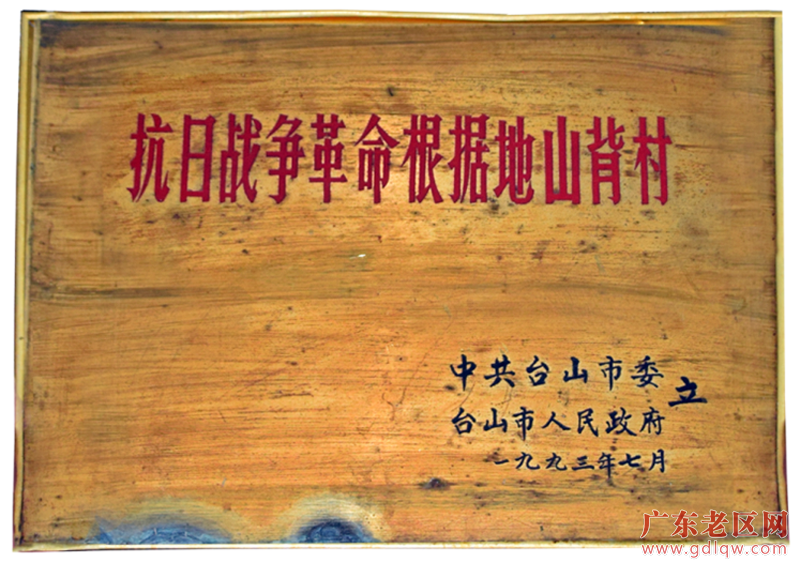 抗日战争革命根据地山背村
中共台山市委
台山市人民政府
立
一九九三年七月
广东老区网
www.gdlqw.com